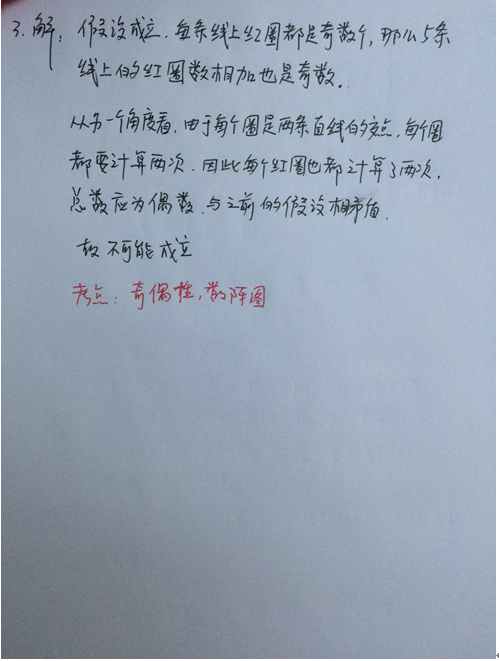 3. 解：假设成立，每条线上红圈都是奇数个，那么5条
线上的红圈数相加也是奇数。
从另一个角度看，由于每个圈是两条直线的交点，每个圈
都要计算两次，因此每个红圈也都计算了两次，
总数应为偶数，与之前的假设相矛盾．
故不可能成立
考点：奇偶性，数阵图